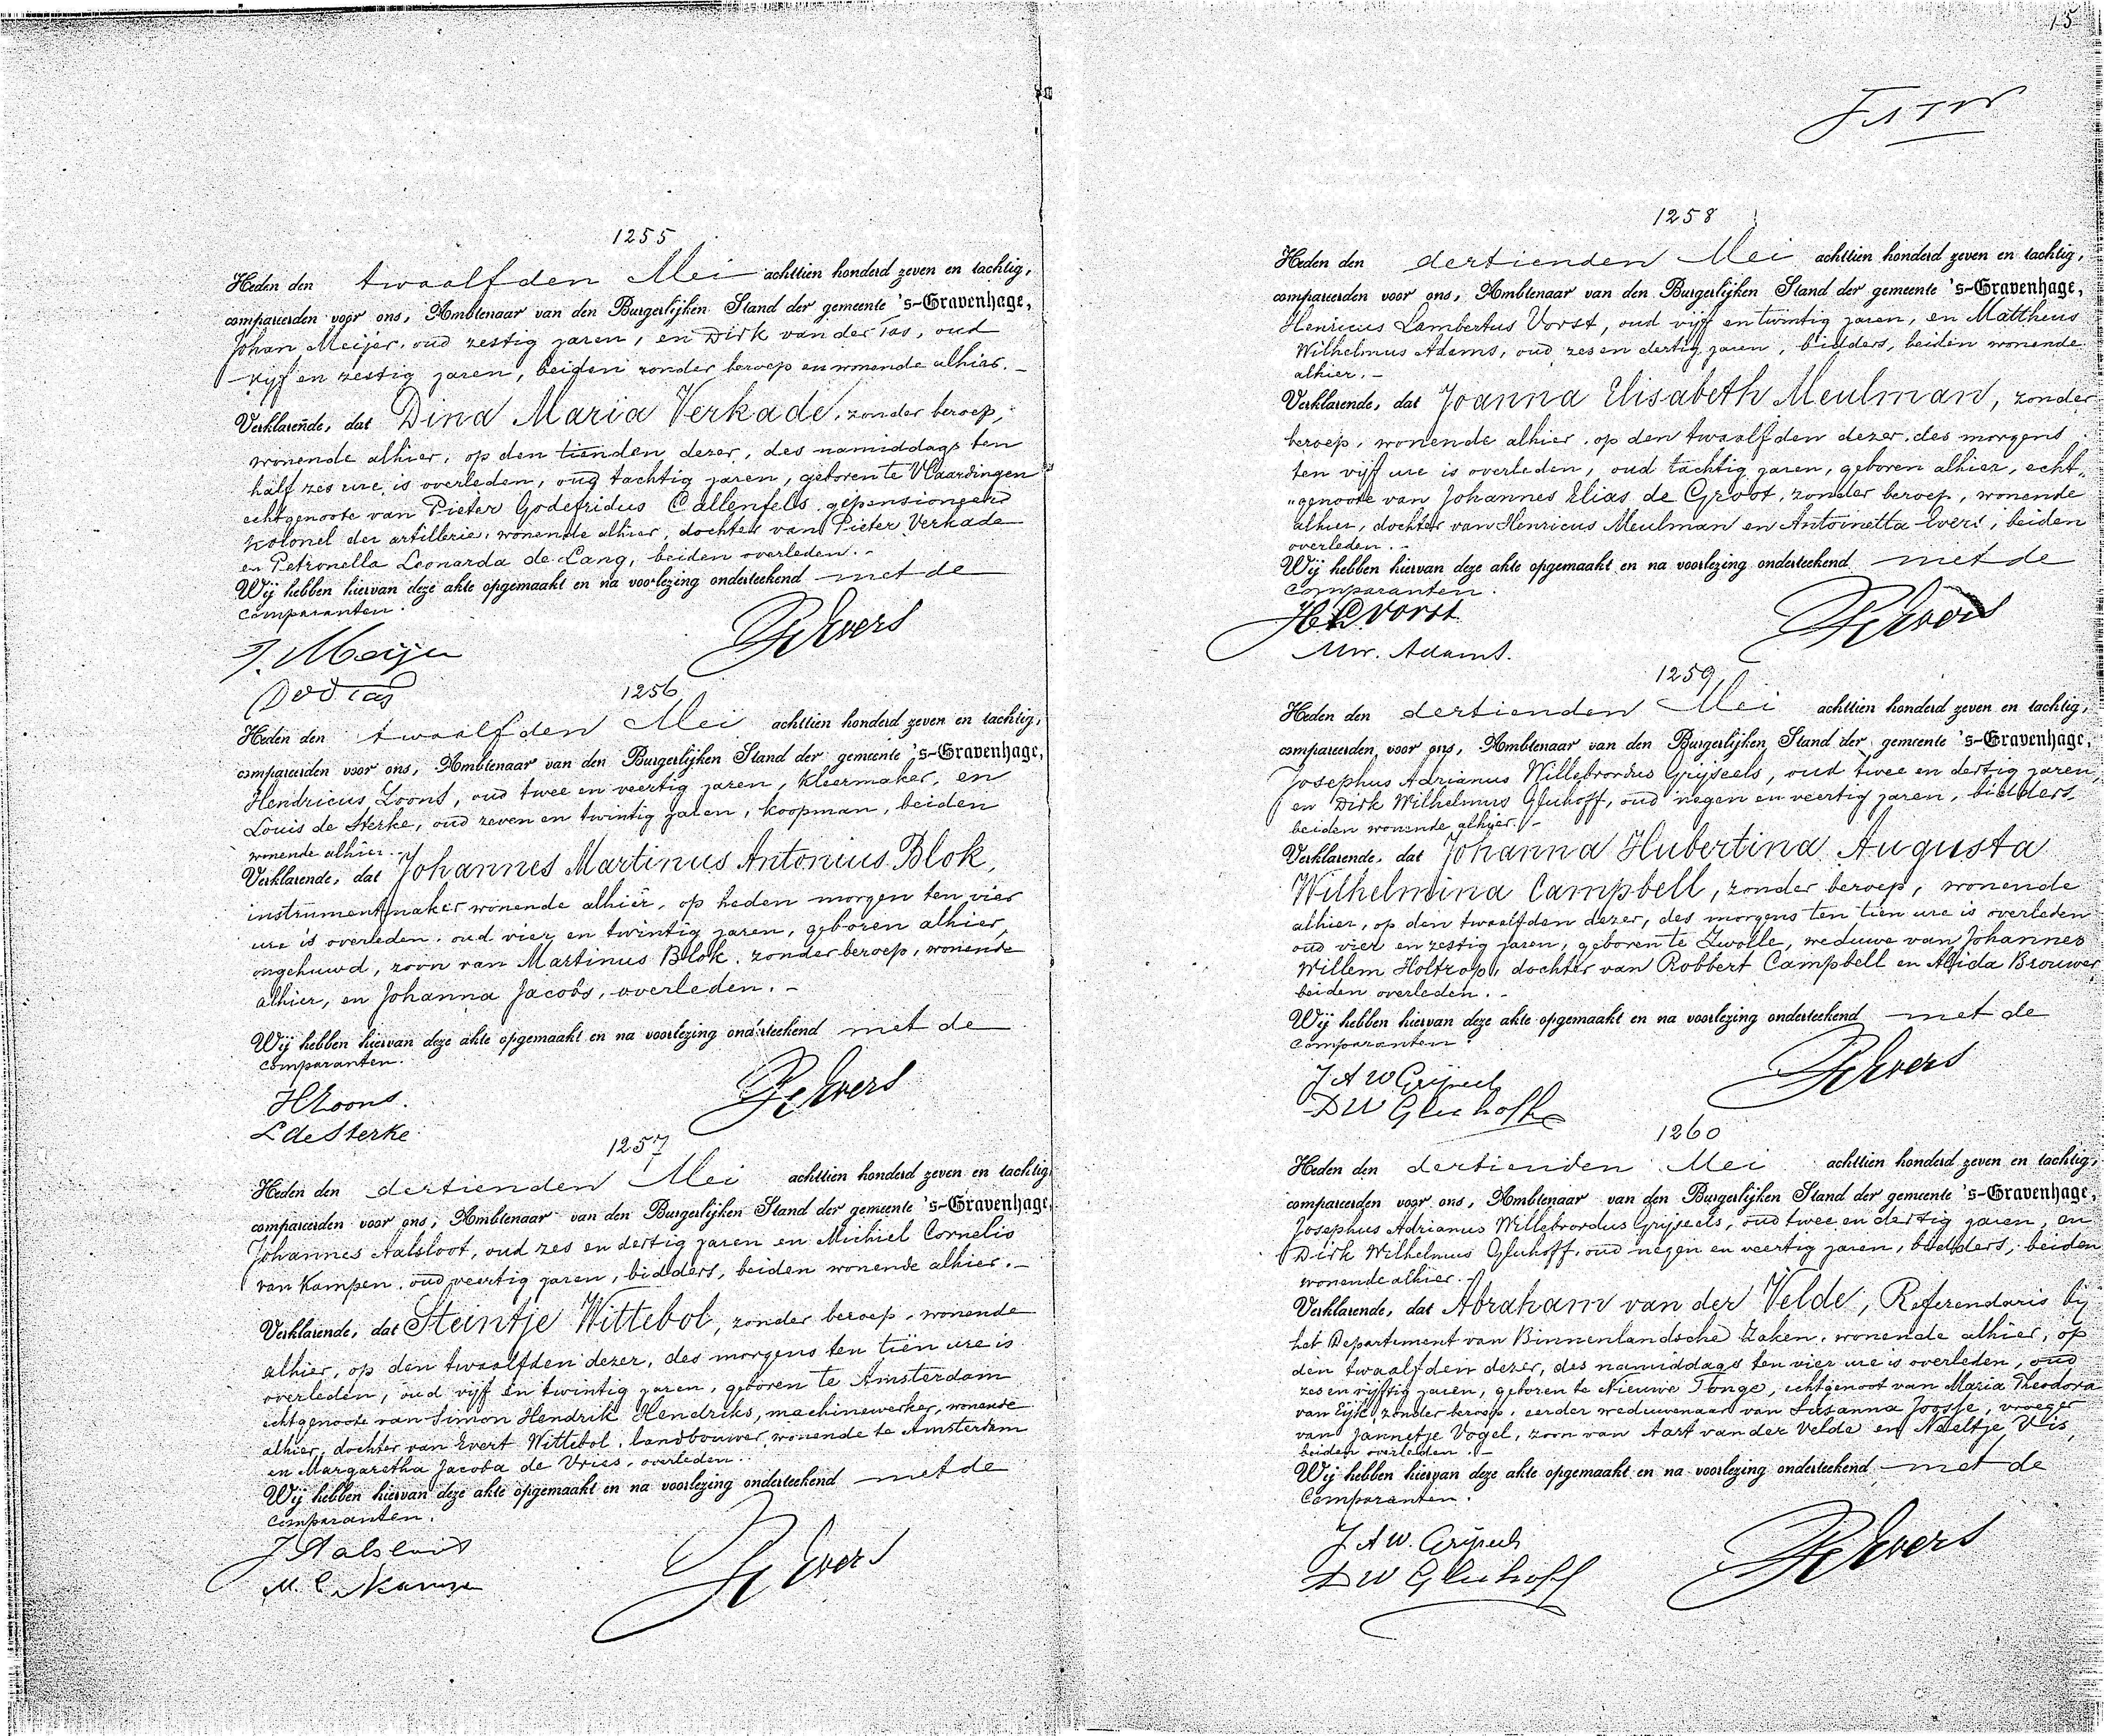 1255
Heden den twaalfden Mei achttien honderd zeven en tachtig,
compareerden voor ons, Ambtenaar van den Burgerlijken Stand der gemeente 's-Gravenhage,
Johan Meijer, oud zestig jaren, en Dirk van der Tas, oud
vijf en zestig jaren, beiden zonder beroep en wonende alhier. -
Verklarende, dat Dina Maria Verkade, zonder beroep,
wonende alhier, op den tienden dezer, des namiddags ten
half zes ure, is overleden, oud tachtig jaren, geboren te Vlaardingen
echtgenoote van Pieter Godefridus Callenfels, gepensioneerd
Kolonel der artillerie, wonende alhier, dochter van Pieter Verkade
en Petronella Leonarda de Lang, beiden overleden. -
Wij hebben hiervan deze akte opgemaakt en na voorlezing onderteekend met de
comparanten.
J. Meijer
Evers
DvdTas
1256
Heden den twaalfden Mei achttien honderd zeven en tachtig,
compareerden voor ons, Ambtenaar van den Burgerlijken Stand der gemeente 's-Gravenhage,
Hendricus Loons, oud twee en veertig jaren, kleermaker, en
Louis de Sterke, oud zeven en twintig jaren, koopman, beiden
wonende alhier. -
Verklarende, dat Johannes Martinus Antonius Blok,
instrumentmaker wonende alhier, op heden morgen ten vier
ure is overleden, oud vier en twintig jaren, geboren alhier,
ongehuwd, zoon van Martinus Blok, zonder beroep, wonende
alhier, en Johanna Jacobs, overleden. -
Wij hebben hiervan deze akte opgemaakt en na voorlezing onderteekend met de
comparanten.
H Loons.
Evers
L de Sterke
1257
Heden den dertienden Mei achttien honderd zeven en tachtig,
compareerden voor ons, Ambtenaar van den Burgerlijken Stand der gemeente 's-Gravenhage,
Johannes Aalsloot, oud zes en dertig jaren en Michiel Cornelis
van Kampen, oud veertig jaren, bidders, beiden wonende alhier. -
Verklarende, dat Steintje Wittebol, zonder beroep, wonende
alhier, op den twaalfden dezer, des morgens ten tien ure is
overleden, oud vijf en twintig jaren, geboren te Amsterdam
echtgenoote van Simon Hendrik Hendriks, machinewerker, wonende
alhier, dochter van Evert Wittebol, landbouwer, wonende te Amsterdam
en Margaretha Jacoba de Vries, overleden.
Wij hebben hiervan deze akte opgemaakt en na voorlezing onderteekend met de
comparanten.
J Aalsloot
Evers
M. C. v Kampen
15
1258
Heden den dertienden Mei achttien honderd zeven en tachtig,
compareerden voor ons, Ambtenaar van den Burgerlijken Stand der gemeente 's-Gravenhage,
Henricus Lambertus Vorst, oud vijf en twintig jaren, en Mattheus
Wilhelmus Adams, oud zes en dertig jaren, bidders, beiden wonende
alhier. -
Verklarende, dat Joanna Elisabeth Meulman, zonder
beroep, wonende alhier, op den twaalfden dezer, des morgens
ten vijf ure is overleden, oud tachtig jaren, geboren alhier, echt-
"genoote van Johannes Elias de Groot, zonder beroep, wonende
alhier, dochter van Henricus Meulman en Antoinetta Evers, beiden
overleden. -
Wij hebben hiervan deze akte opgemaakt en na voorlezing onderteekend met de
comparanten.
H L Vorst
Evers
MW. Adams.
1259
Heden den dertienden Mei achttien honderd zeven en tachtig,
compareerden voor ons, Ambtenaar van den Burgerlijken Stand der gemeente 's-Gravenhage,
Josephus Adrianus Willebrordus Grijseels, oud twee en dertig jaren,
en Dirk Wilhelmus Gluhoff, oud negen en veertig jaren, bidders,
beiden wonende alhier. -
Verklarende, dat Johanna Hubertina Augusta
Wilhelmina Campbell, zonder beroep, wonende
alhier, op den twaalfden dezer, des morgens ten tien ure is overleden
oud vier en zestig jaren, geboren te Zwolle, weduwe van Johannes
Willem Holtrop, dochter van Robbert Campbell en Alida Brouwer
beiden overleden. -
Wij hebben hiervan deze akte opgemaakt en na voorlezing onderteekend met de
comparanten.
J A W Grijseels
Evers
D W Gluhoff
1260
Heden den dertienden Mei achttien honderd zeven en tachtig,
compareerden voor ons, Ambtenaar van den Burgerlijken Stand der gemeente 's-Gravenhage,
Josephus Adrianus Willebrordus Grijseels, oud twee en dertig jaren, en
Dirk Wilhelmus Gluhoff, oud negen en veertig jaren, bidders, beiden
wonende alhier. -
Verklarende, dat Abraham van der Velde, Referendaris bij
het Departement van Binnenlandsche Zaken, wonende alhier, op
den twaalfden dezer, des namiddags ten vier ure is overleden, oud
zes en vijftig jaren, geboren te Nieuwe Tonge, echtgenoot van Maria Theodora
van Eijk, zonder beroep, eerder weduwenaar van Susanna Joosse, vroeger
van Jannetje Vogel, zoon van Aart van der Velde en Neeltje Vis,
beiden overleden. -
Wij hebben hiervan deze akte opgemaakt en na voorlezing onderteekend met de
comparanten.
J. A W. Grijseels
Evers
D W Gluhoff